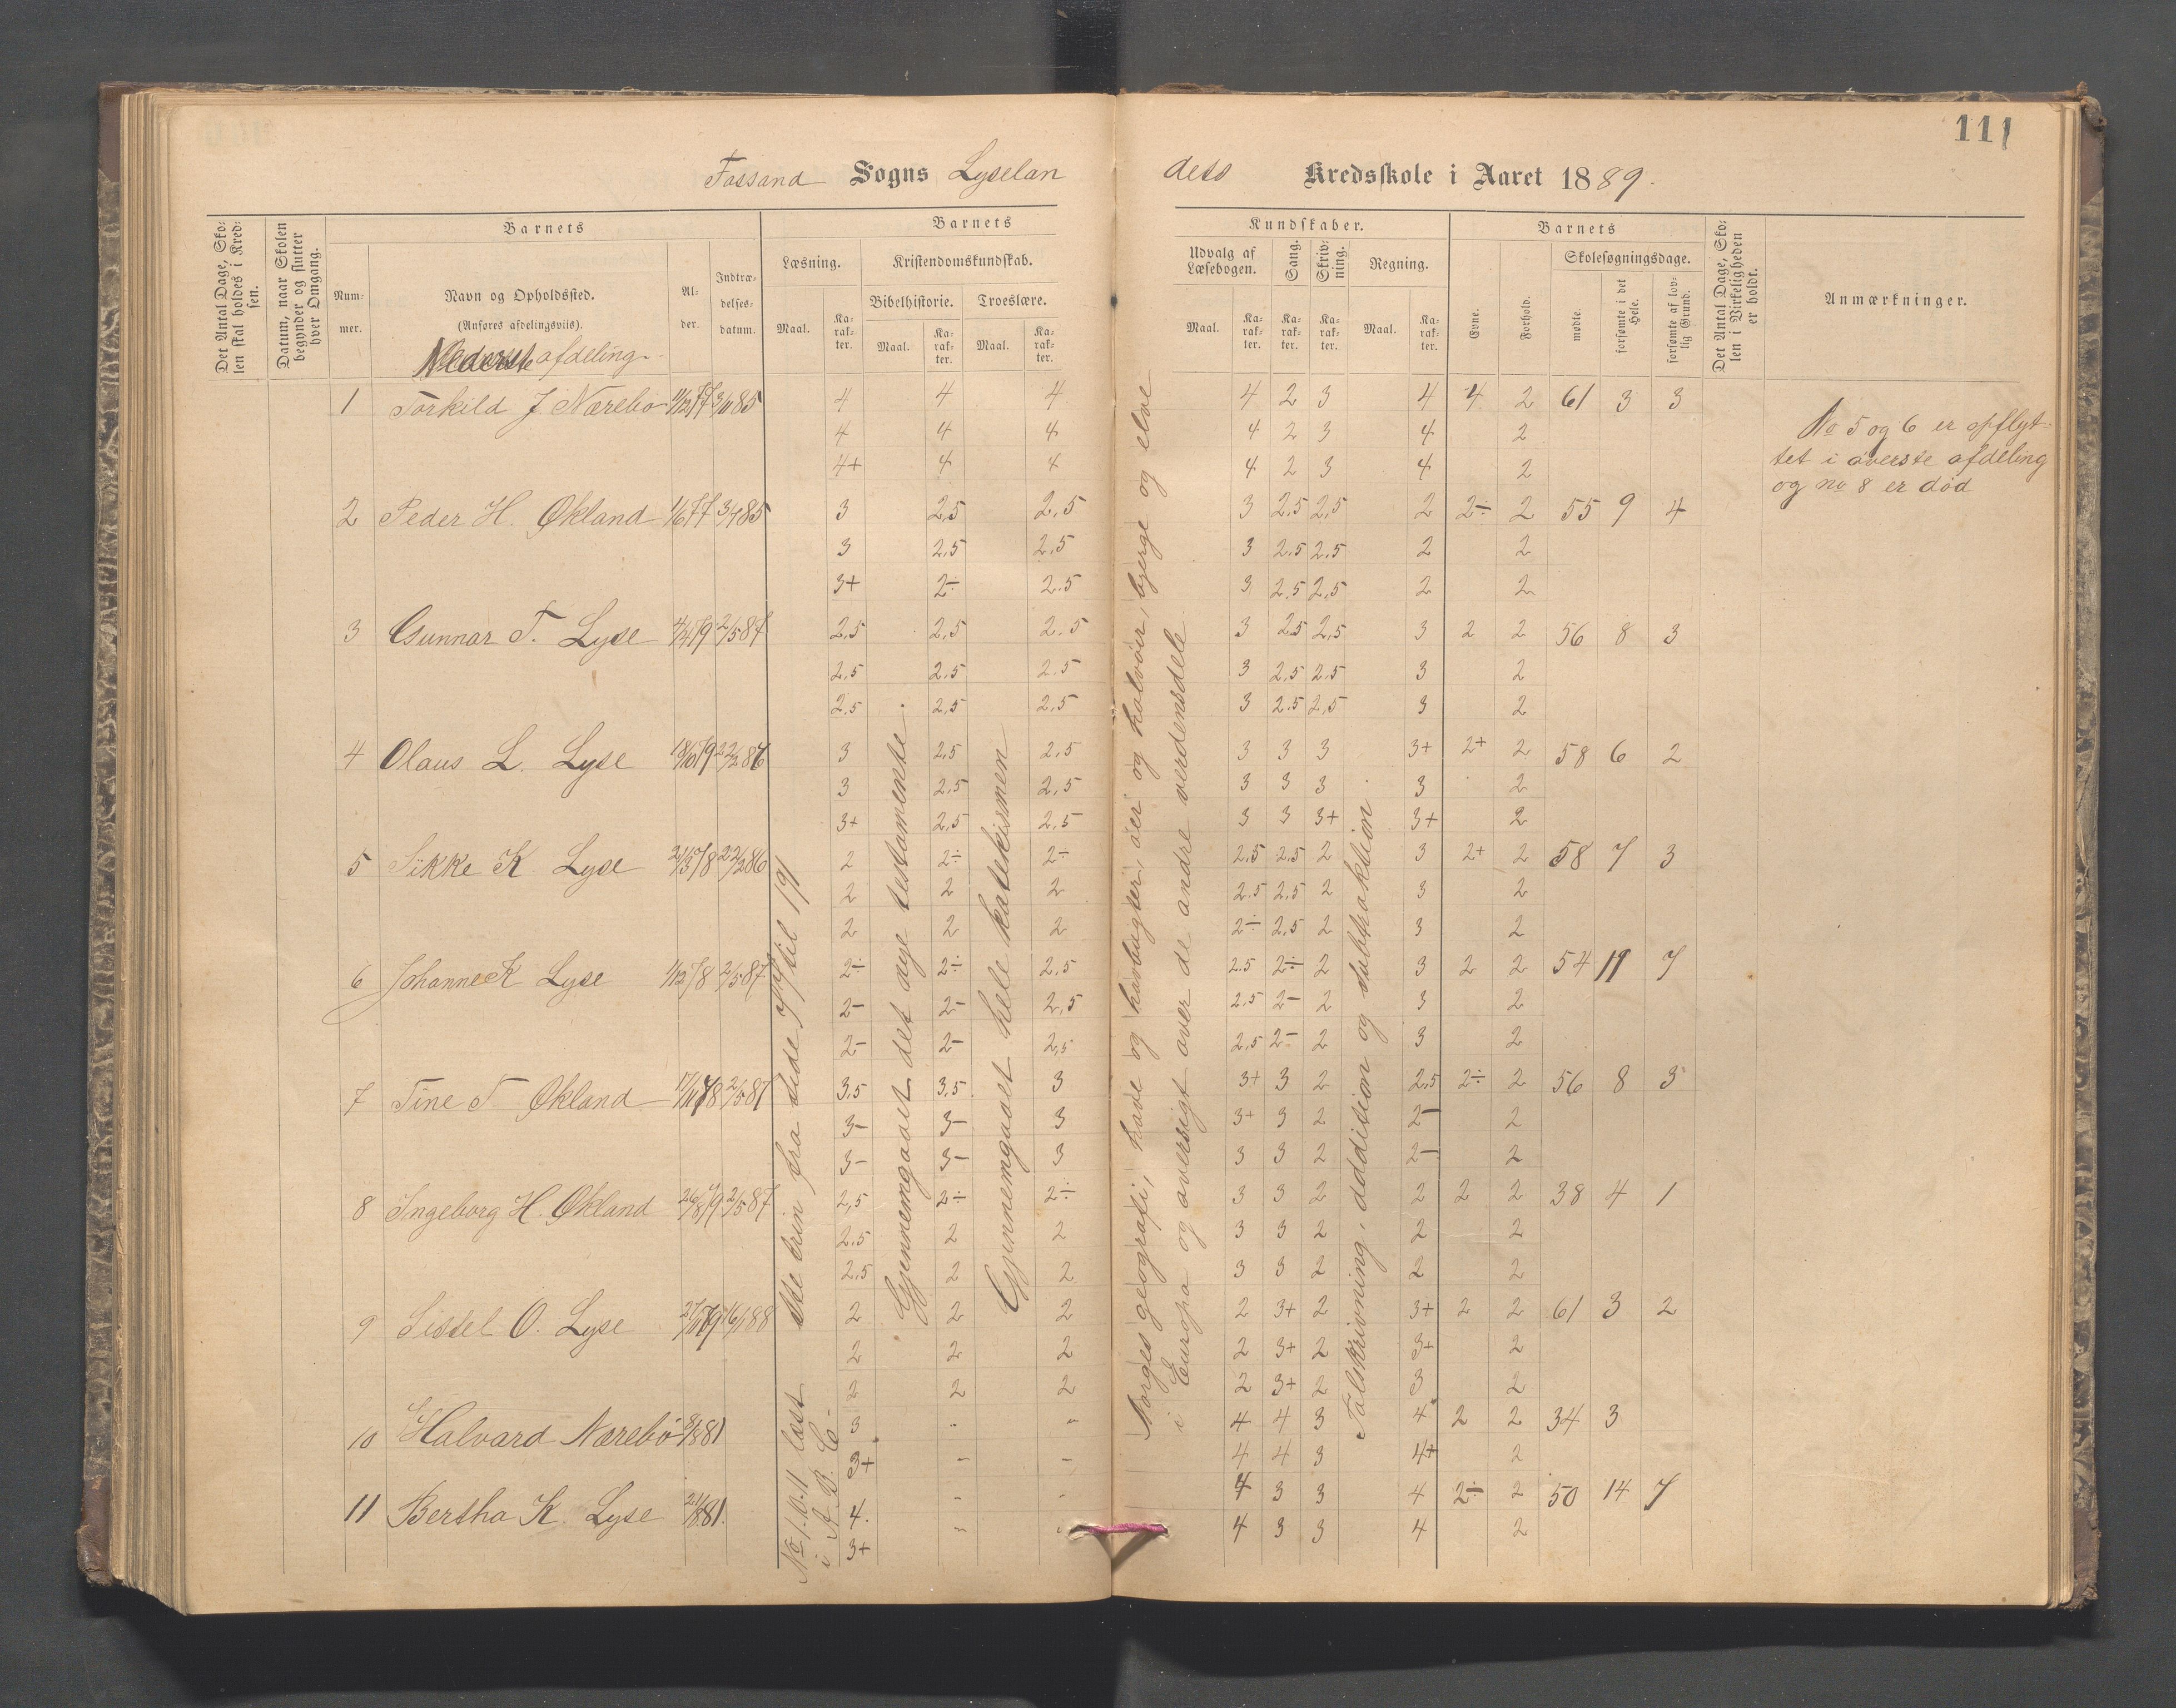 111
Fossand Sogns Lyselan
dets Kredsskole i Aaret 1889.
Det Antal Dage, Skolen skal holdes i Kredsen.
Datum, naar Skolen begynder og slutter hver Omgang.
Barnets
Nummer.
Navn og Opholdssted.
(Anføres afdelingsviis).
Alder.
Indtrædelses-datum.
Barnets
Læsning.
Maal.
Karakter.
Kristendomskundskab.
Bibelhistorie.
Maal.
Karakter.
Troeslære.
Maal.
Karakter.
Kundskaber.
Udvalg af Læsebogen.
Maal.
Karakter.
Sang.
Karakter.
Skrivning.
Karakter.
Regning.
Maal.
Karakter.
Barnets
Evne.
Forhold.
Skolesøgningsdage.
mødte.
forsømte i det Hele.
forsømte af lovlig Grund.
Det Antal Dage, Skolen i Virkeligheden er holdt.
Anmærkninger.
Nederste afdeling.
1 Torkild J Nærebø 11/12 77 3/11 85 4 4 4 4 2 3 4 4 2 61 3 3
4 4 4 4 2 3 4 2
4+ 4 4 4 2 3 4 2
2 Peder H. Økland 1/6 77 3/7 85 3 2,5 2,5 3 2,5 2,5 2 2÷ 2 55 9 4
3 2,5 2,5 3 2,5 2,5 2 2
3+ 2÷ 2.5 3 2,5 2,5 2 2
3 Gunnar T. Lyse 4/4 79 2/5 87 2,5 2,5 2.5 3 2.5 2,5 3 2 2 56 8 3
2,5 2,5 2.5 3 2,5 2,5 3 2
2,5 2,5 2,5 3 2.5 2,5 3 2
4 Olaus L. Lyse 18/10 79 22/2 86 3 2,5 2,5 3 3 3 3+ 2+ 2 58 6 2
3 2,5 2,5 3 3 3 3 2
3+ 2,5 2,5 3 3 3+ 3+ 2
5 Sikke K Lyse 21/3 78 22/2 86 2 2÷ 2÷ 2.5 2,5 2 3 2+ 2 58 7 3
2 2 2 2.5 2,5 2 3 2
2 2 2 2÷ 2,5 2 3 2
6 Johanne K Lyse 1/12 78 2/5 87 2÷ 2÷ 2,5 2.5 2÷ 2 3 2 2 54 19 7
2- 2- 2,5 2,5 2- 2 3 2
2- 2- 2,5 2,5 2- 2 3 2
7 Tine T Økland 17/11 78 2/5 87 3,5 3,5 3 3+ 3 2 2,5 2÷ 2 56 8 3
3- 3- 3 3+ 3 2 2- 2
3- 3- 3 3 3 2 2- 2
8 Ingeborg H. Økland 26/8 79 2/5 87 2,5 2÷ 2÷ 3 3 2 2 2 2 38 4 1
2.5 2 2 3 3 2 2 2
2,5 2 2 3 3 2 2 2
9 Sissel O. Lyse 27/11 79 16/1 88 2 2 2 2 3+ 2 3+ 2 2 61 3 2
2 2 2 2 3+ 2 3+ 2
2 2 2 2 3+ 2 3 2
10 Halvard Nærebø 81 3 " " 4 4 3 4 2 2 34 3
3+ - - 4 4 3 4+ 2
11 Bertha K. Lyse 81. 4. - - 4 3 3 4 2÷ 2 50 14 7
3+ 4 3 3 4 2
No 1. 10. 11 læst
i A. B. C.
trin fra side 77 til 191
Gjennemgaaet det nye testamente.
Gjennemgaaet hele katekismen
Norges geografi, have og havbugter, øer og halvøer, bjerge og elve
i Europa og oversigt over de andre verdensdele
Talskrivning, addition og subtraktion.
No 5 og 6 er opflyt-
tet i øverste afdeling
og no 8 er død